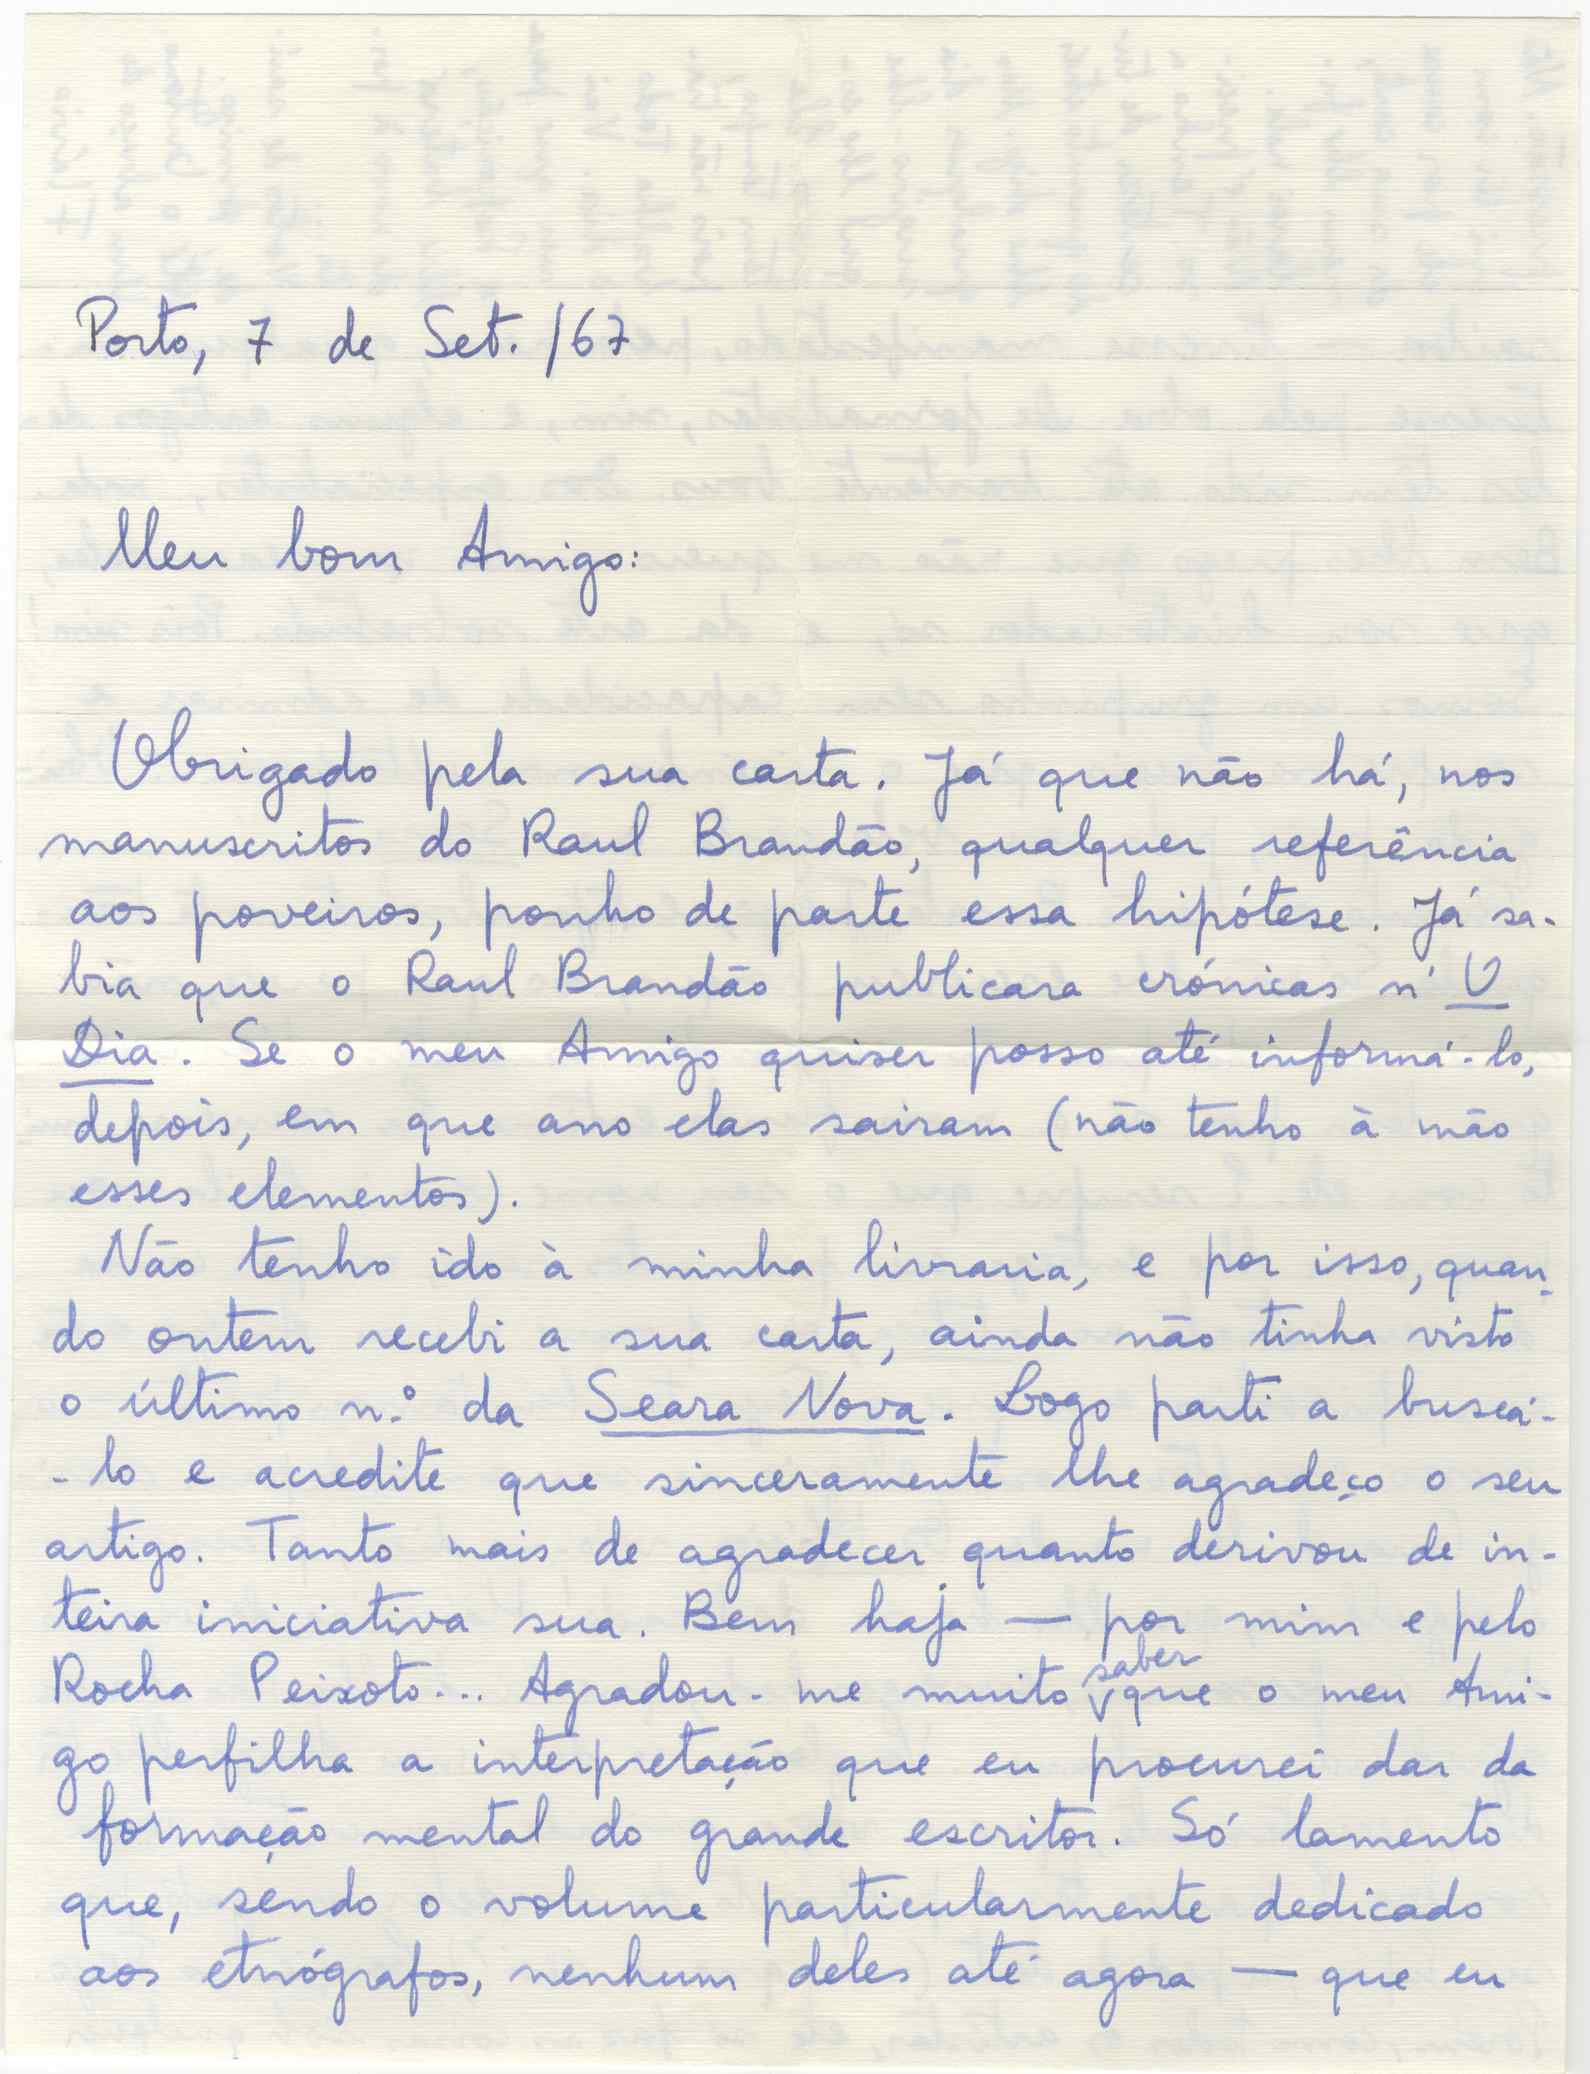 Porto, 7 de Set. /67
Meu bom Amigo:
Obrigado pela sua carta. Já que não há, nos
manuscritos do Raul Brandão, qualquer referência
aos poveiros, ponho de parte essa hipótese. Já sa-
bia que o Raul Brandão publicara crónicas n' O
Dia. Se o meu Amigo quiser posso até informá-lo,
depois, em que ano elas sairam (não tenho à mão
esses elementos).
Não tenho ido à minha livraria, e por isso, quan-
do ontem recebi a sua carta, ainda não tinha visto
o último n.º da Seara Nova. Logo parti a buscá-
-lo e acredite que sinceramente lhe agradeço o seu
artigo. Tanto mais de agradecer quanto derivou de in-
teira iniciativa sua. Bem haja — por mim e pelo
Rocha Peixoto... Agradou-me muito saber que o meu Ami-
go perfilha a interpretação que eu procurei dar da
formação mental do grande escritor. Só lamento
que, sendo o volume particularmente dedicado
aos etnógrafos, nenhum deles até agora — que eu